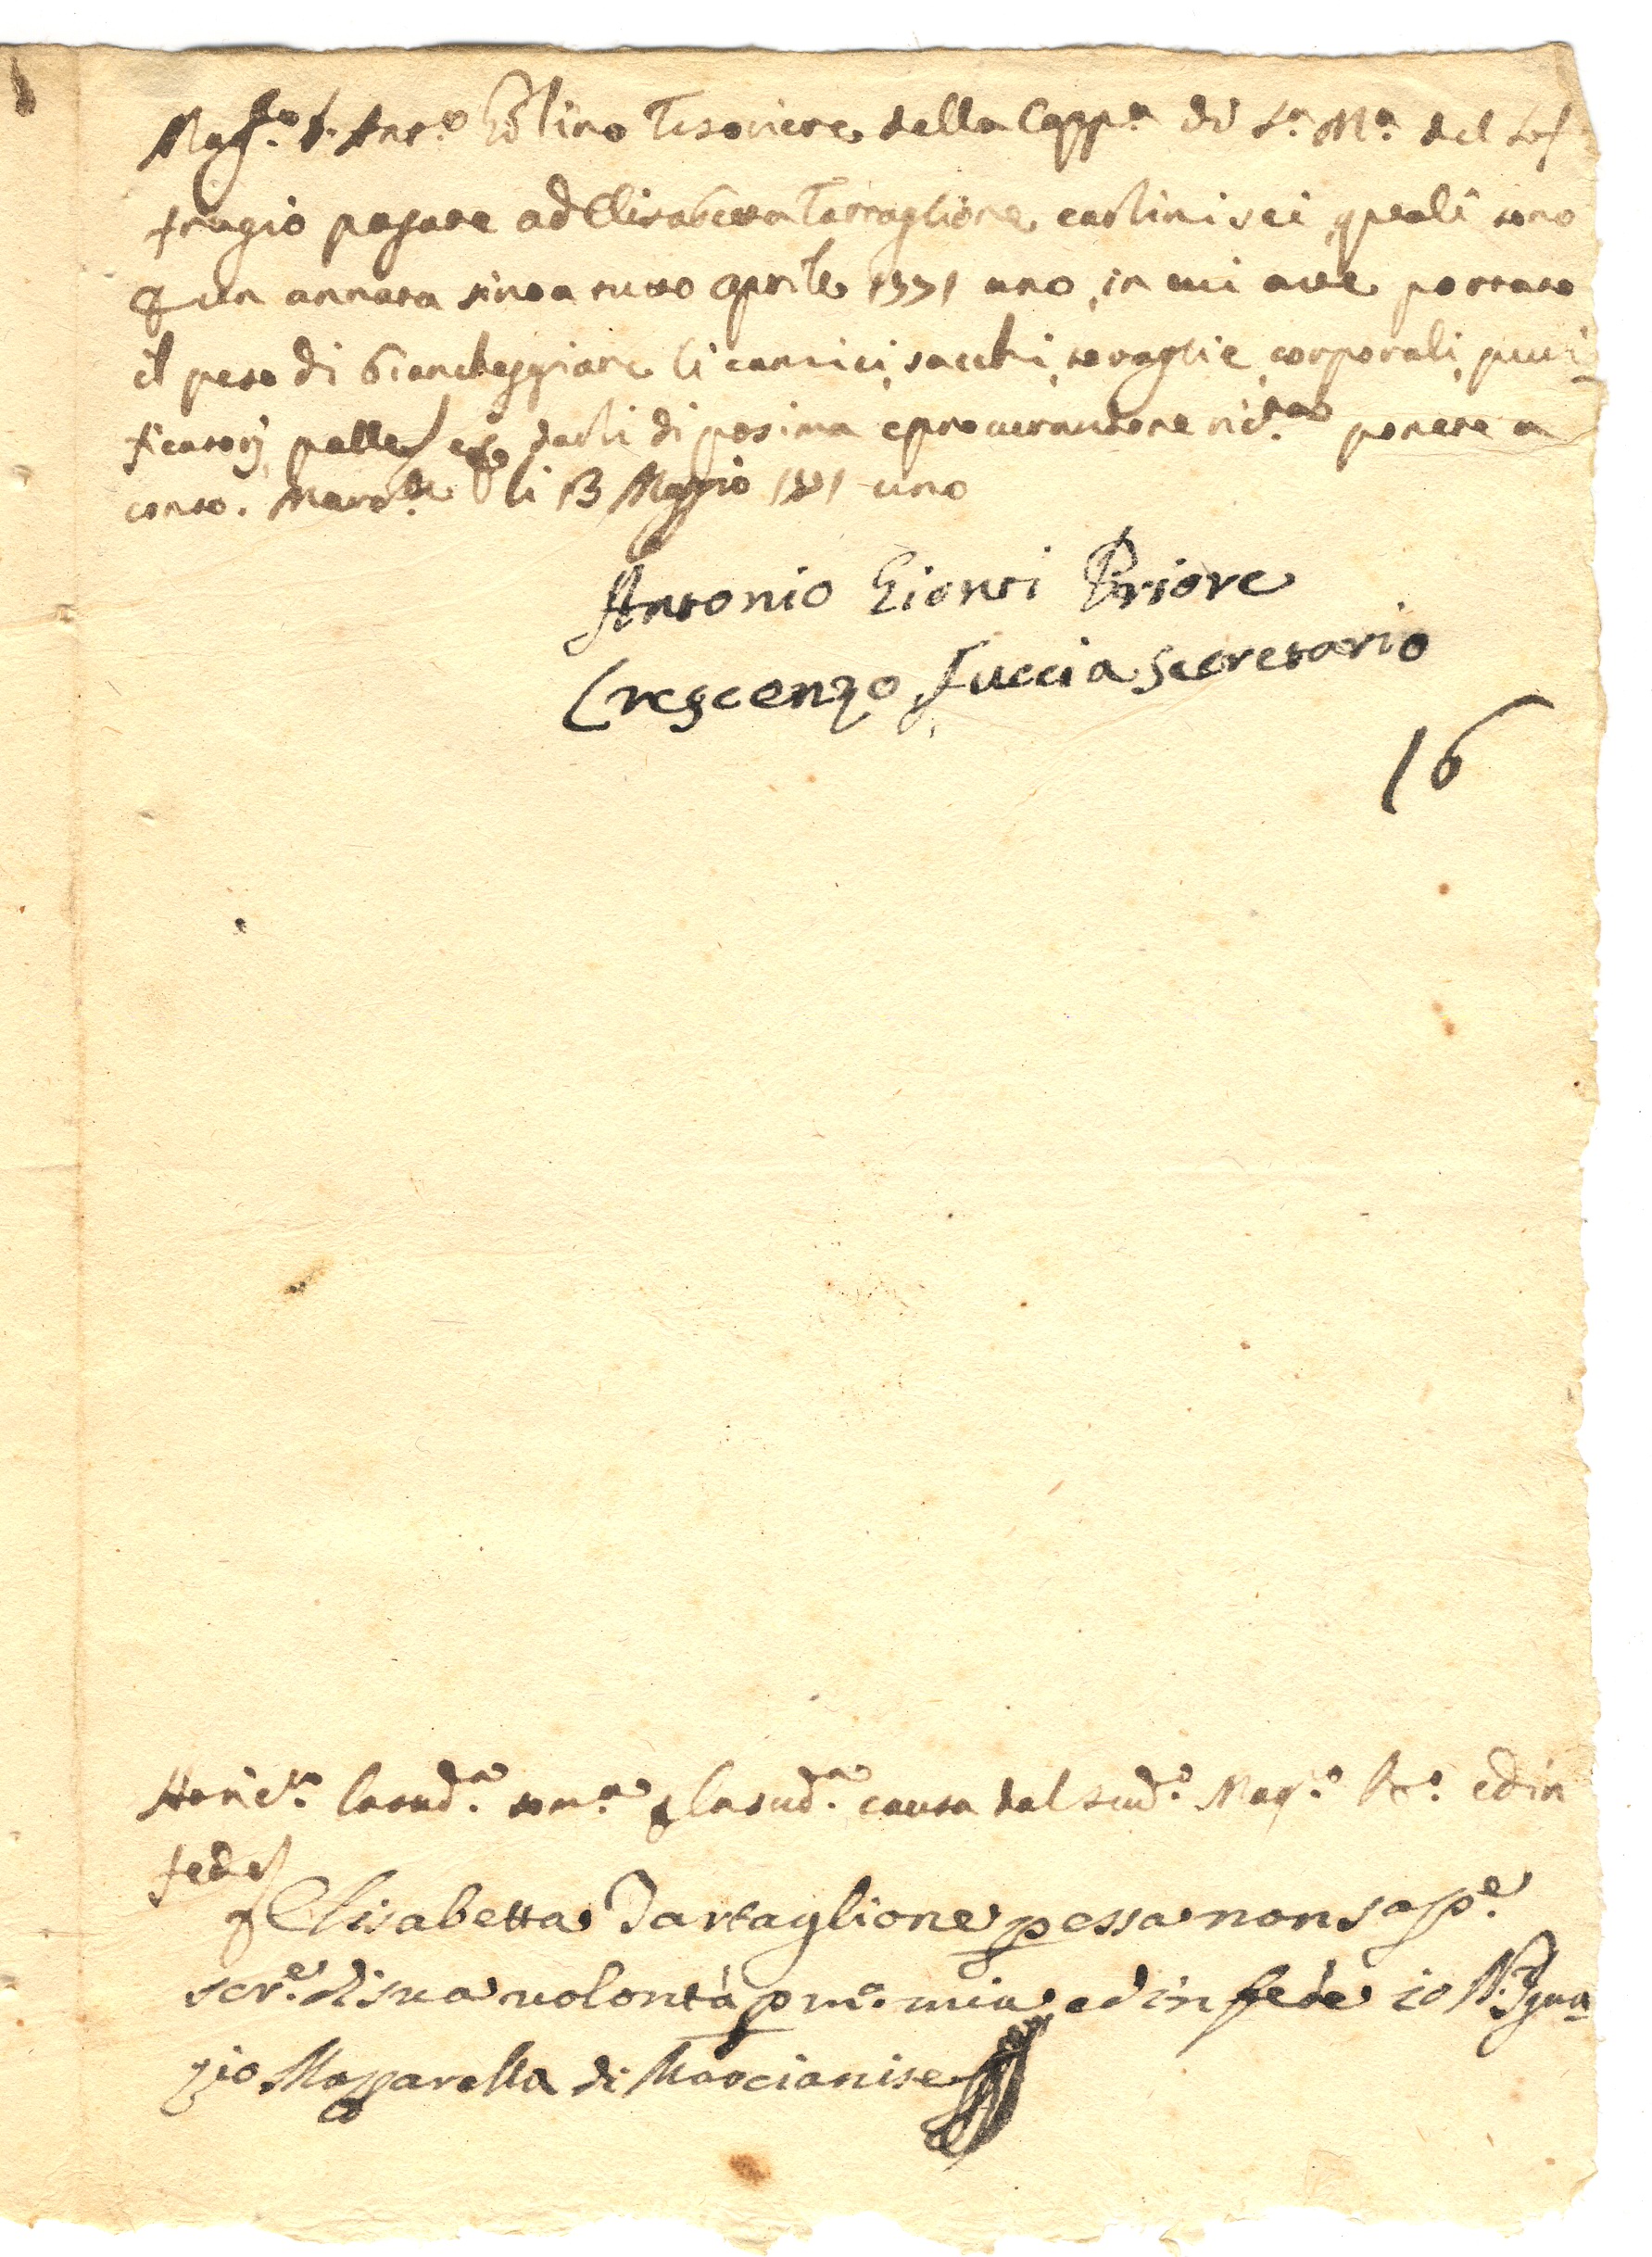 Mag.co Ant.o Tesoriere della Capp.a di S.a M.a del Suf
fragio pagate ad Elisabetta Tartaglione carlini sei quali sono
p un annata sino a tutto Aprile 1771 uno, in cui ave portato
il peso di biancheggiare li cammici, sacchi, tovaglie, corporali, puri
ficatorj, palle, e darli di posima e procurandone ric.ta ponete a
conto. Marc.se li 13 Maggio 1771 uno
Antonio Gionti Priore
Crescenzo Tuccia Secretario
16
la sud.a som.a p la sud.a causa dal sud.o Mag.o ed in
fede
Elisabetta Tartaglione p essa non sap.e
scr.e di sua volontà p m.o mia ed in fede io N.r Igna
zio Mazzarella di Marcianise